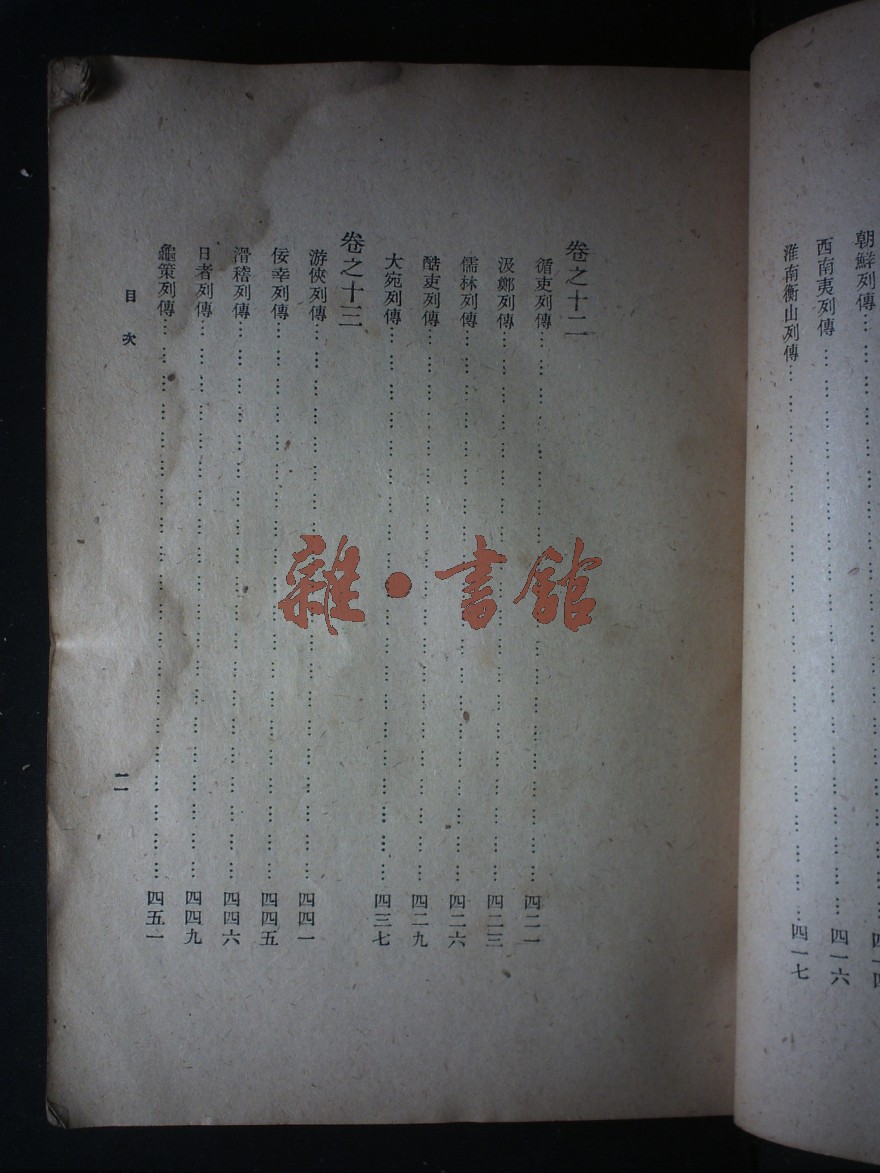 朝鮮列傳
西南夷列傳……四一六
淮南衡山列傳……四一七
卷之十二
循吏列傳……四二一
汲鄭列傳……四二三
儒林列傳……四二六
酷吏列傳……四二九
大宛列傳……四三七
卷之十三
游俠列傳……四四一
佞幸列傳……四四五
滑稽列傳……四四六
日者列傳……四四九
龜策列傳……四五一
目次
雜·書館